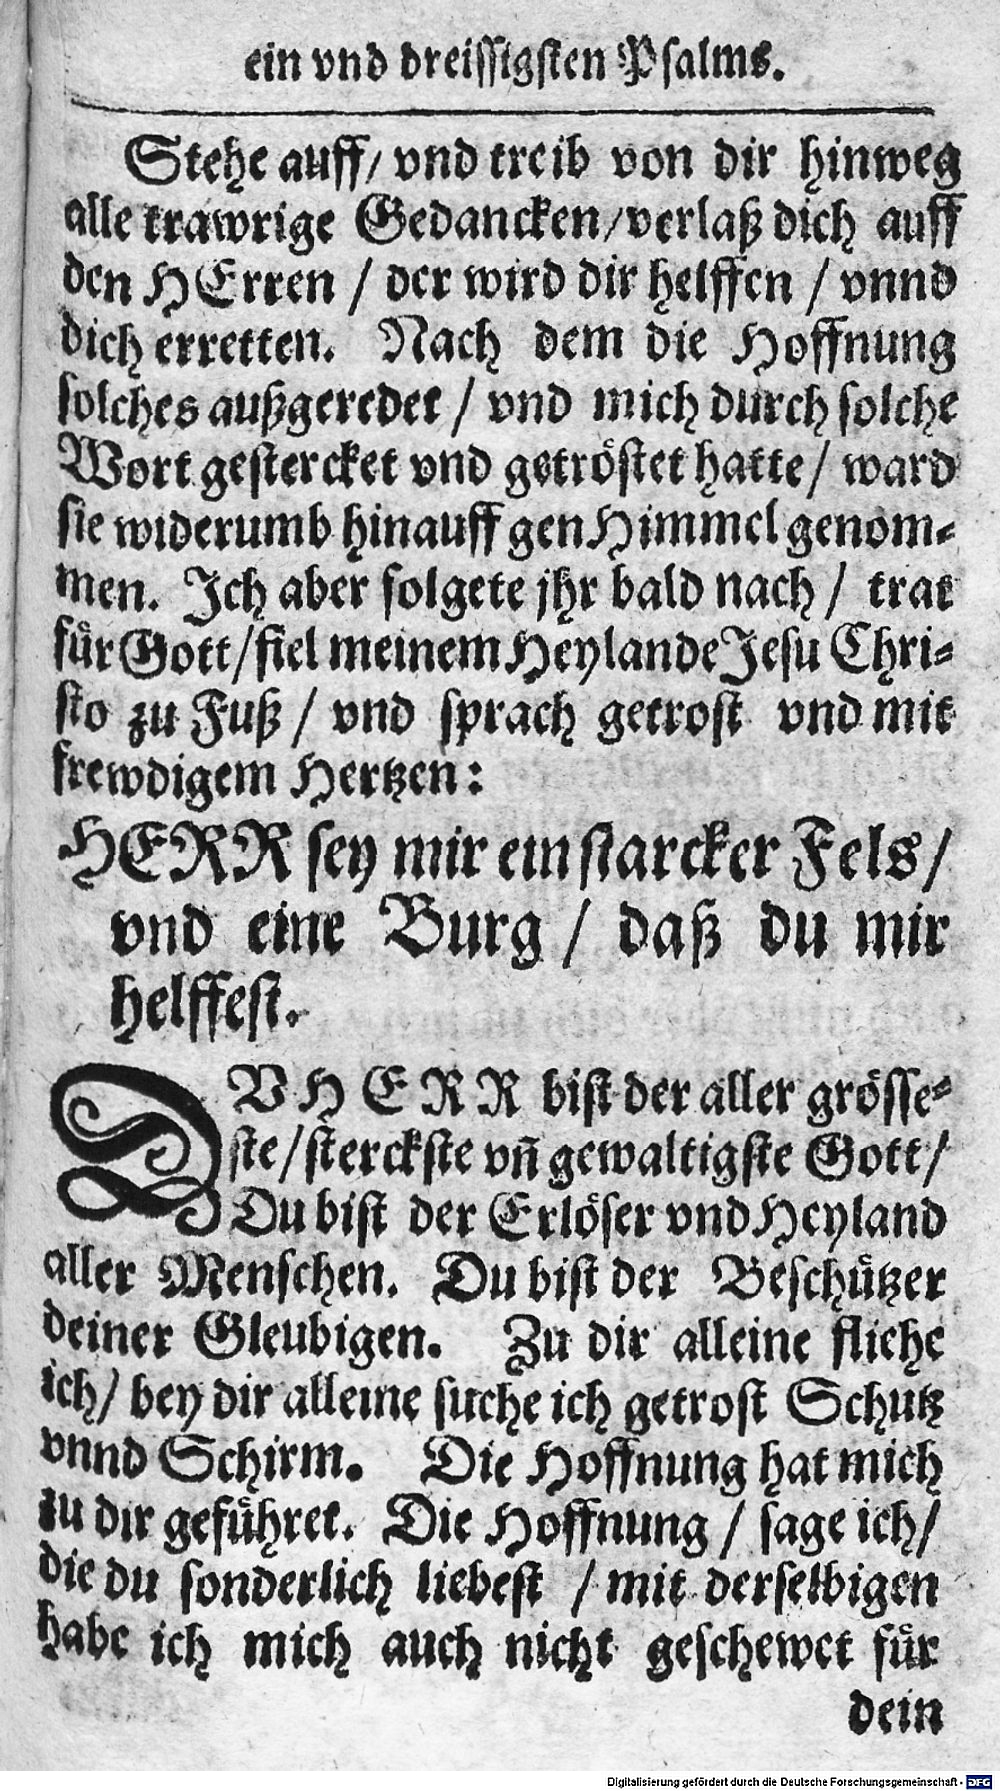 ein vnd dreissigsten Psalms.
Stehe auff/ vnd treib von dir hinweg
alle trawrige Gedancken/verlaß dich auff
den HErren / der wird dir helffen / vnnd
dich erretten. Nach dem die Hoffnung
solches außgeredet / vnd mich durch solche
Wort gestercket vnd getröstet hatte/ ward
sie widerumb hinauff gen Himmel genom-
men. Ich aber folgete jhr bald nach / trat
für Gott/fiel meinem Heylande Jesu Chri-
sto zu Fuß / vnd sprach getrost vnd mit
frewdigem Hertzen:
HERR sey mir ein starcker Fels/
vnd eine Burg / daß du mir
helffest.
DV HERR bist der aller grösse-
ste/sterckste vn̄ gewaltigste Gott/
Du bist der Erlöser vnd Heyland
aller Menschen. Du bist der Beschützer
deiner Gleubigen. Zu dir alleine fliehe
ich/ bey dir alleine suche ich getrost Schutz
vnnd Schirm. Die Hoffnung hat mich
zu dir geführet. Die Hoffnung / sage ich/
die du sonderlich liebest / mit derselbigen
habe ich mich auch nicht geschewet für
dein
Digitalisierung gefördert durch die Deutsche Forschungsgemeinschaft - DFG